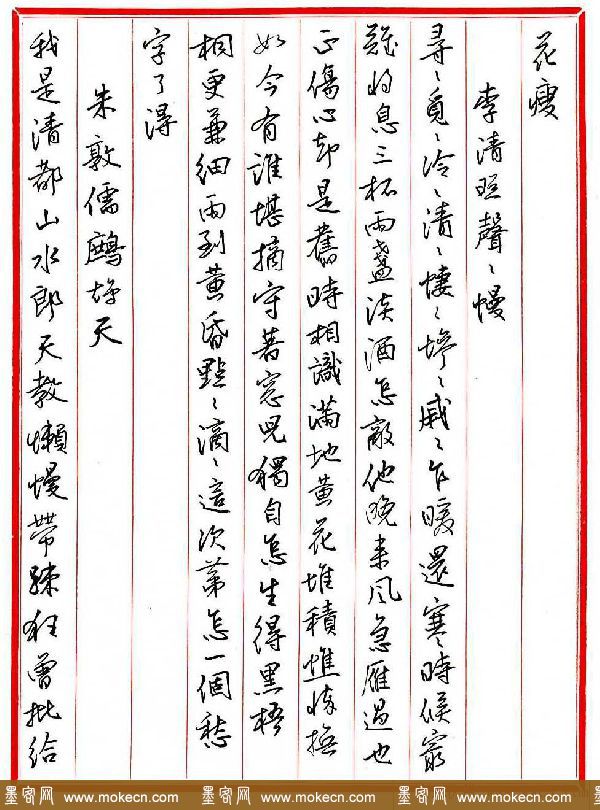 花瘦
李清照聲〻慢
尋〻覓〻冷〻清〻悽〻慘〻戚〻乍暖還寒時候最
難將息三杯兩盞淡酒怎敵他晚來風急雁過也
正傷心却是舊時相識滿地黃花堆積憔悴損
如今有誰堪摘守著窗兒獨自怎生得黑梧
桐更兼細雨到黃昏點〻滴〻這次第怎一個愁
字了得
朱敦儒鷓鴣天
我是清都山水郎天教懶慢帶疎狂曾批給
墨客网 www.mokecn.com 墨客网 www.mokecn.com 墨客网 www.mokecn.com